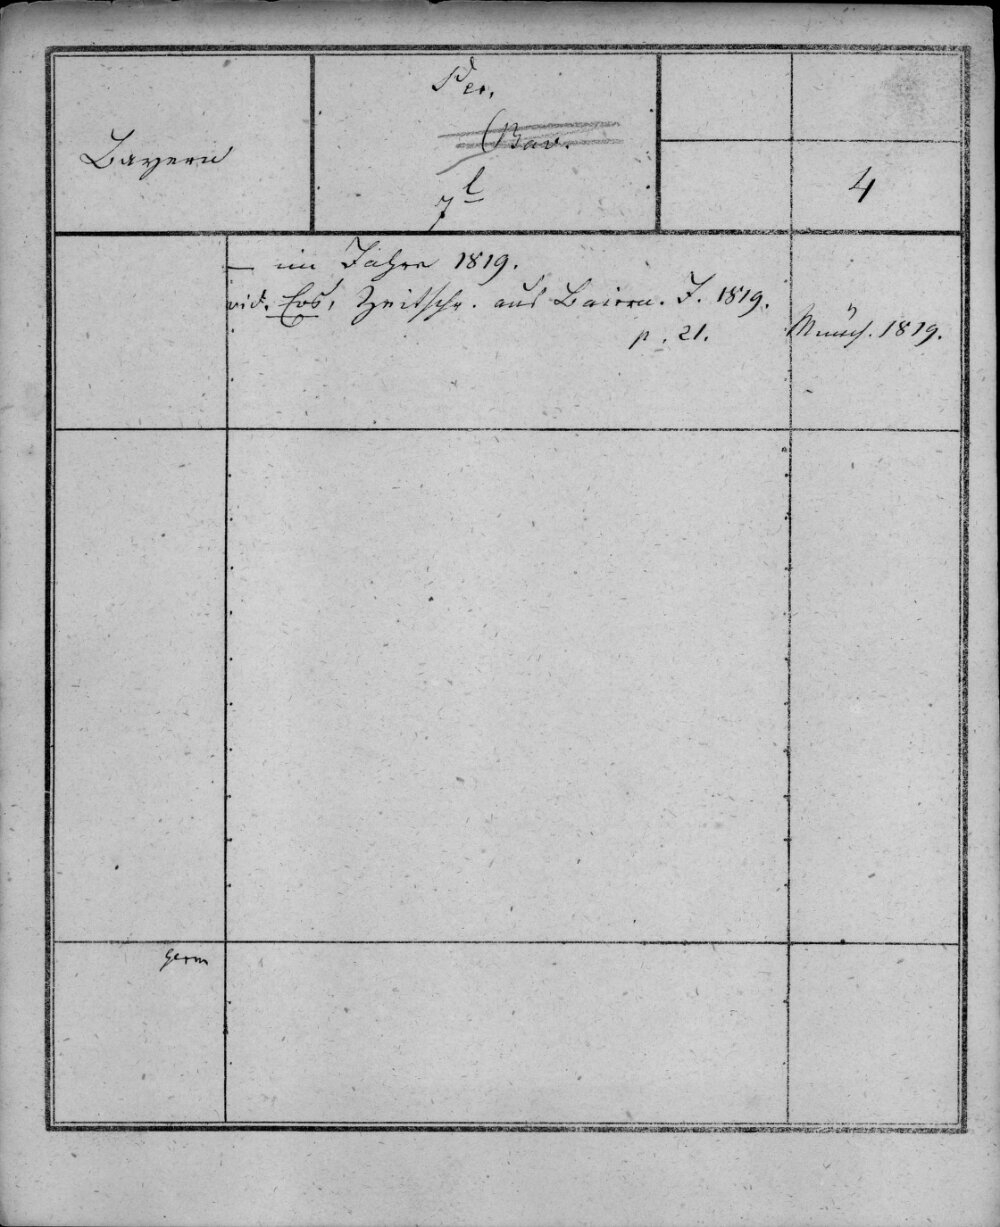 Bayern
Per.
(Bav.
7 l
4
— im Jahre 1819.
vid. Eos, Zeitschr. aus Baiern. J. 1819.
p. 21.
Münch. 1819.
germ